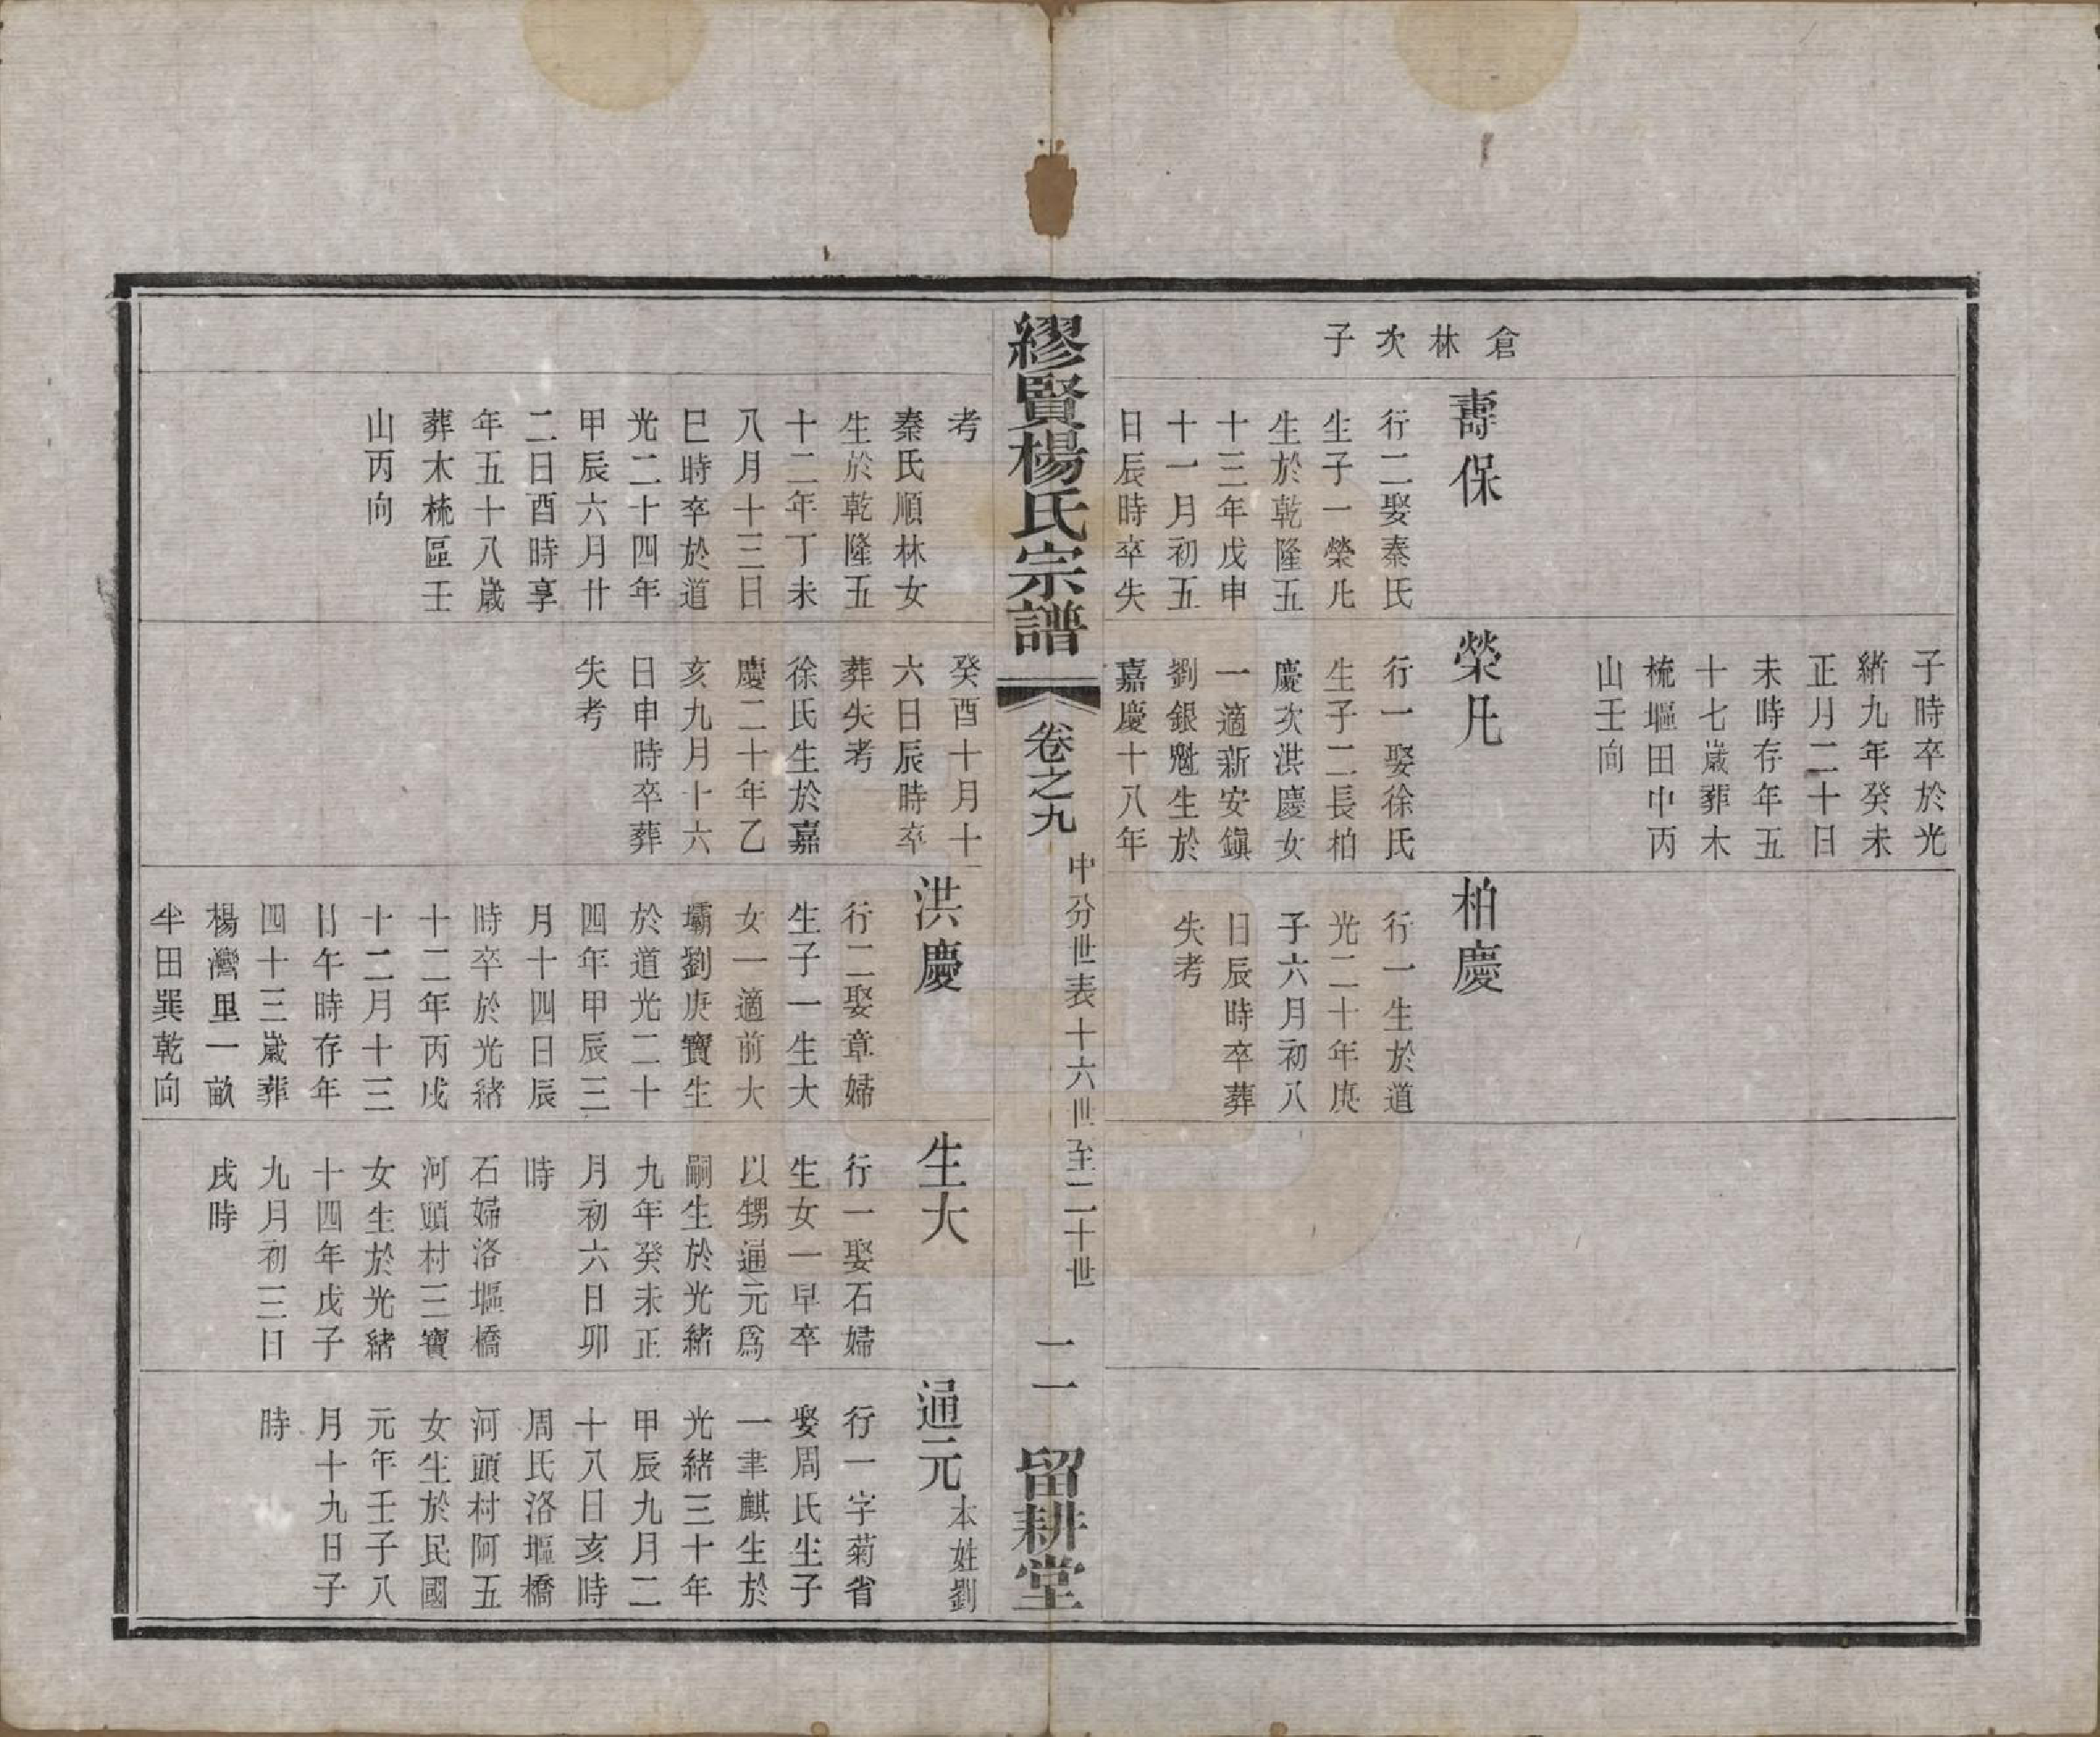 倉林次子
壽保
行二娶秦氏
生子一榮凡
生於乾隆五
十三年戊申
十一月初五
日辰時卒失
子時卒於光
緒九年癸未
正月二十日
未時存年五
十七歲葬木
梳塸田中丙
山壬向
榮凡
行一娶徐氏
生子二長柏
慶次洪慶女
一適新安鎭
劉銀魁生於
嘉慶十八年
柏慶
行一生於道
光二十年庚
子六月初八
日辰時卒葬
失考
繆賢楊氏宗譜
卷之九
中分世表十六世至二十世
二一
留耕堂
考
秦氏順林女
生於乾隆五
十二年丁未
八月十三日
巳時卒於道
光二十四年
甲辰六月廿
二日酉時享
年五十八歲
葬木梳區壬
山丙向
癸酉十月十
六日辰時卒
葬失考
徐氏生於嘉
慶二十年乙
亥九月十六
日申時卒葬
失考
洪慶
行二娶章婦
生子一生大
女一適前大
壩劉庚寶生
於道光二十
四年甲辰三
月十四日辰
時卒於光緒
十二年丙戌
十二月十三
日午時存年
四十三歲葬
楊灣里一畝
半田巽乾向
生大
行一娶石婦
生女一早卒
以甥通元爲
嗣生於光緒
九年癸未正
月初六日卯
時
石婦洛塸橋
河頭村三寶
女生於光緒
十四年戊子
九月初三日
戌時
通元
本姓劉
行一字菊省
娶周氏生子
一聿麒生於
光緒三十年
甲辰九月二
十八日亥時
周氏洛塸橋
河頭村阿五
女生於民國
元年壬子八
月十九日子
時